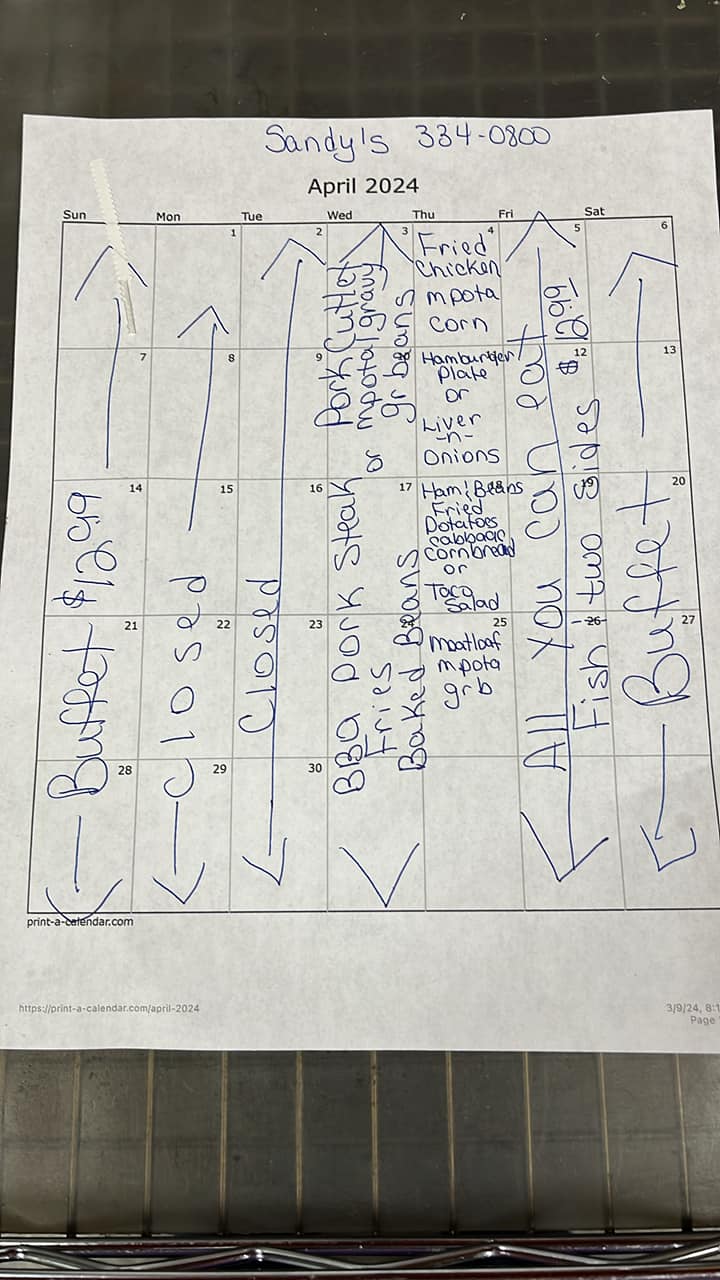 Sandy's 334-0800
April 2024
Sun Mon Tue Wed Thu Fri Sat
1 2 3 4 5 6
7 8 9 10 12 13
14 15 16 17 18 19 20
21 22 23 24 25 26 27
28 29 30
Buffet $12.99
Closed
Closed
BBQ Pork Steak or Pork Cutlet
Fries mpota/gravy
Baked Beans gr beans
Fried
Chicken
mpota
corn
Hamburger
Plate
or
Liver
-n-
Onions
Ham & Beans
Fried
Potatoes
Cabbage
Cornbread
or
Taco
Salad
Meatloaf
mpota
grb
All you can eat
Fish - two sides $12.99
Buffet
print-a-calendar.com
https://print-a-calendar.com/april-2024
3/9/24, 8:1
Page